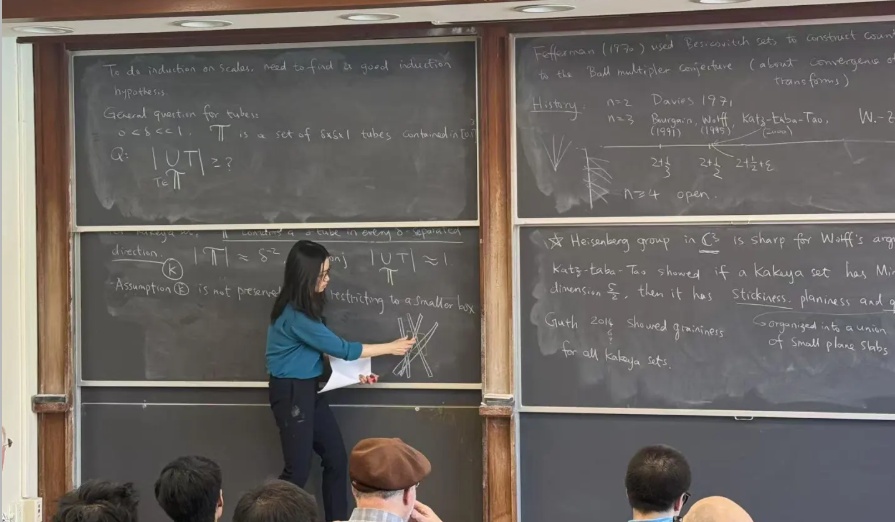 To do induction on scales, need to find a good induction
hypothesis.
General question for tubes:
0 < δ << 1. 𝕋 is a set of δxδx1 tubes contained in
Q: | ∪ T | ≥ ?
T∈𝕋
𝕋 contains a δ-tube in every δ-separated
direction. |𝕋| ≈ δ⁻² | ∪ T | ≈ 1
𝕋
(K)
-Assumption (K) is not restricting to a smaller box
Fefferman (1970) used Besicovitch sets to construct
to the Ball multiplier conjecture (about convergence
transforms)
History. n=2 Davies 1971
n=3 Bourgain, Wolff, Katz-Łaba-Tao, W.-Z
(1991) (1995) (2000)
2+1/3 2+1/2 2+1/2+ε
n≥4 open.
☆ Heisenberg group in ℂ³ is sharp for Wolff's
Katz-Łaba-Tao showed if a Kakeya set has
dimension 5/2, then it has stickiness, planiness and
Guth 2016 showed graininess → organized into a union
of small plane slabs
for all Kakeya sets.